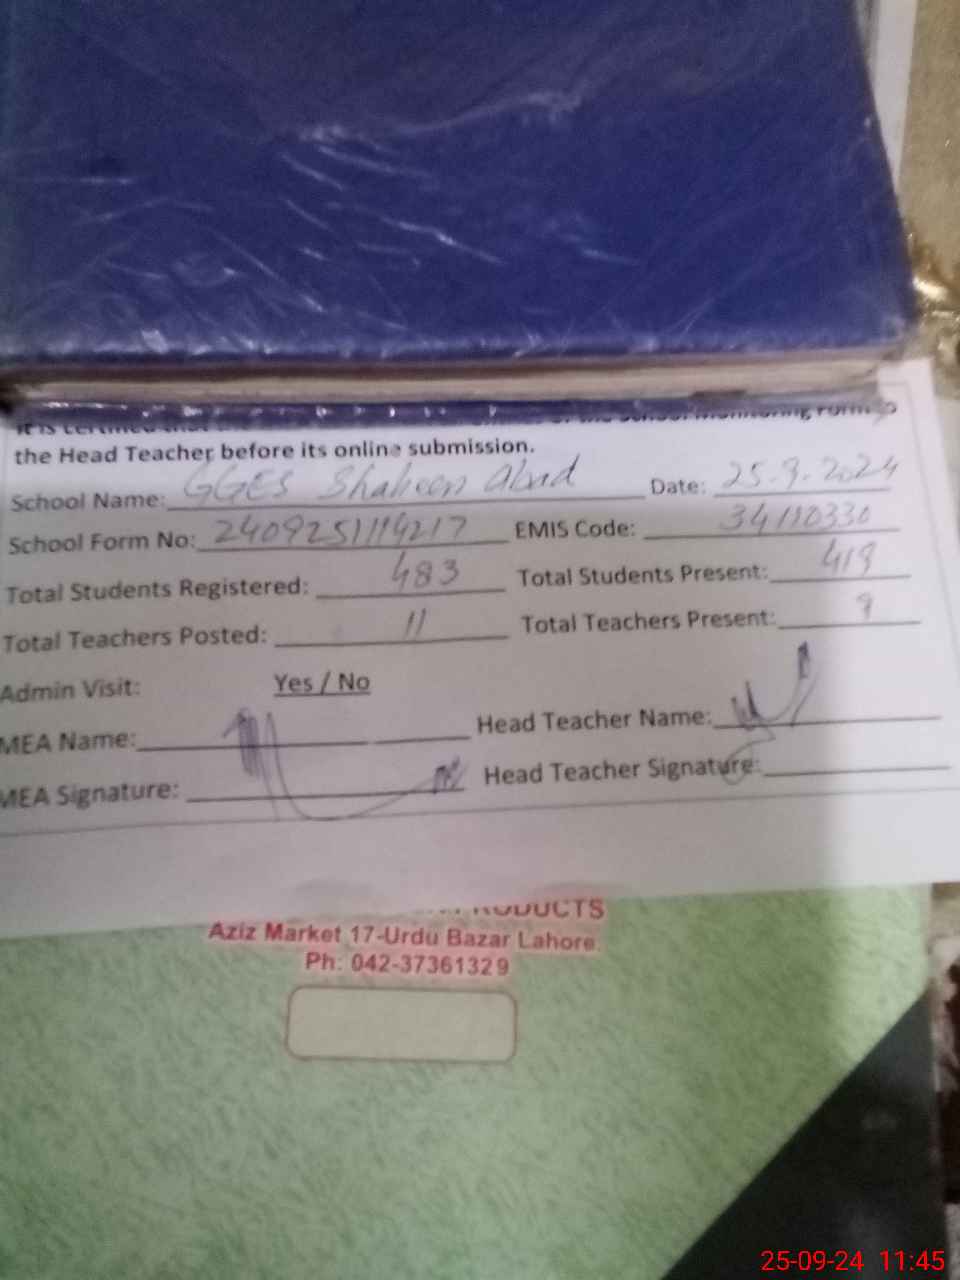 the Head Teacher before its online submission.
School Name: GGES Shaheen Abad Date: 25-9-2024
School Form No: 2409251114217 EMIS Code: 34110330
Total Students Registered: 483 Total Students Present: 419
Total Teachers Posted: 11 Total Teachers Present: 9
Admin Visit: Yes / No
MEA Name: Head Teacher Name:
MEA Signature: Head Teacher Signature:
PRODUCTS
Aziz Market 17-Urdu Bazar Lahore
Ph: 042-37361329
25-09-24 11:45